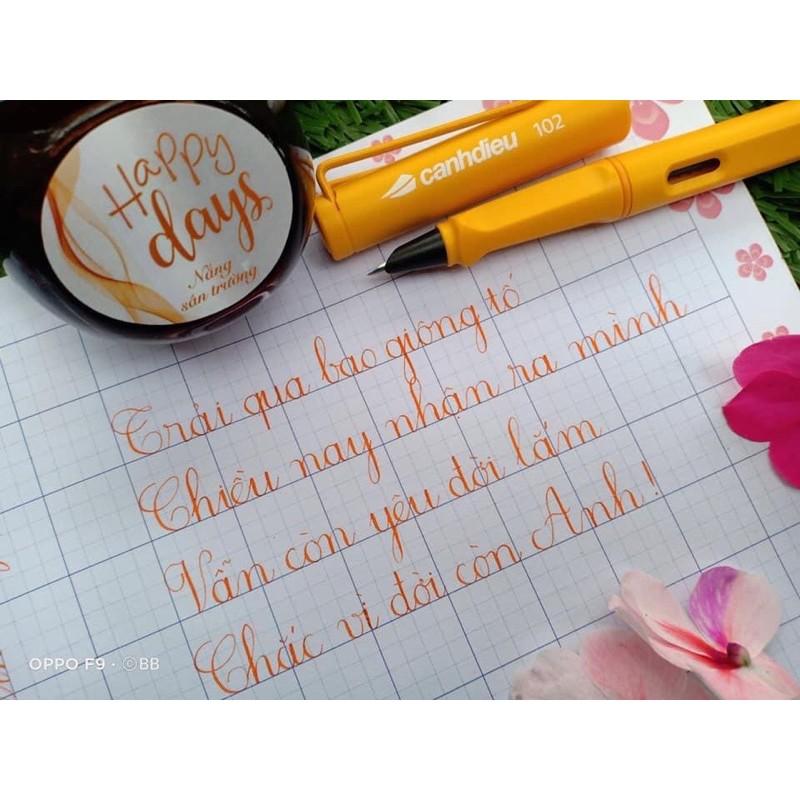 Happy
days
Nắng
sân trường
canhdieu 102
Trải qua bao giông tố
Chiều nay nhận ra mình
Vẫn còn yêu đời lắm
Chắc vì đời còn Anh!
OPPO F9 · ©BB